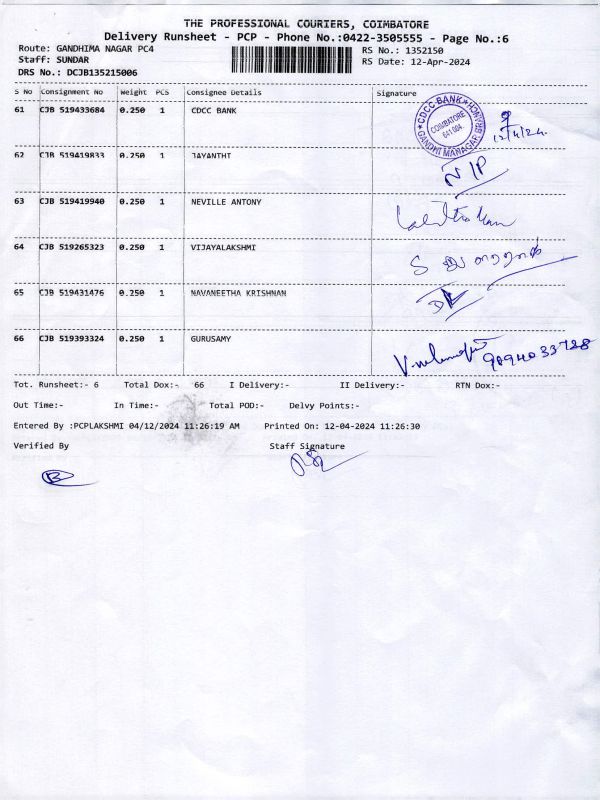 THE PROFESSIONAL COURIERS, COIMBATORE
Delivery Runsheet - PCP - Phone No.:0422-3505555 - Page No.:6
Route: GANDHIMA NAGAR PC4 RS No.: 1352150
Staff: SUNDAR RS Date: 12-Apr-2024
DRS No.: DCJB135215006
S No Consignment No Weight PCS Consignee Details Signature
61 CJB 519433684 0.250 1 CDCC BANK
CDCC BANK COIMBATORE 641 004. GANDHI MANAGAR BRANCH
12/4/24
62 CJB 519419833 0.250 1 JAYANTHI
N/P
63 CJB 519419940 0.250 1 NEVILLE ANTONY
64 CJB 519265323 0.250 1 VIJAYALAKSHMI
65 CJB 519431476 0.250 1 NAVANEETHA KRISHNAN
66 CJB 519393324 0.250 1 GURUSAMY
9094033728
Tot. Runsheet:- 6 Total Dox:- 66 I Delivery:- II Delivery:- RTN Dox:-
Out Time:- In Time:- Total POD:- Delvy Points:-
Entered By :PCPLAKSHMI 04/12/2024 11:26:19 AM Printed On: 12-04-2024 11:26:30
Verified By Staff Signature